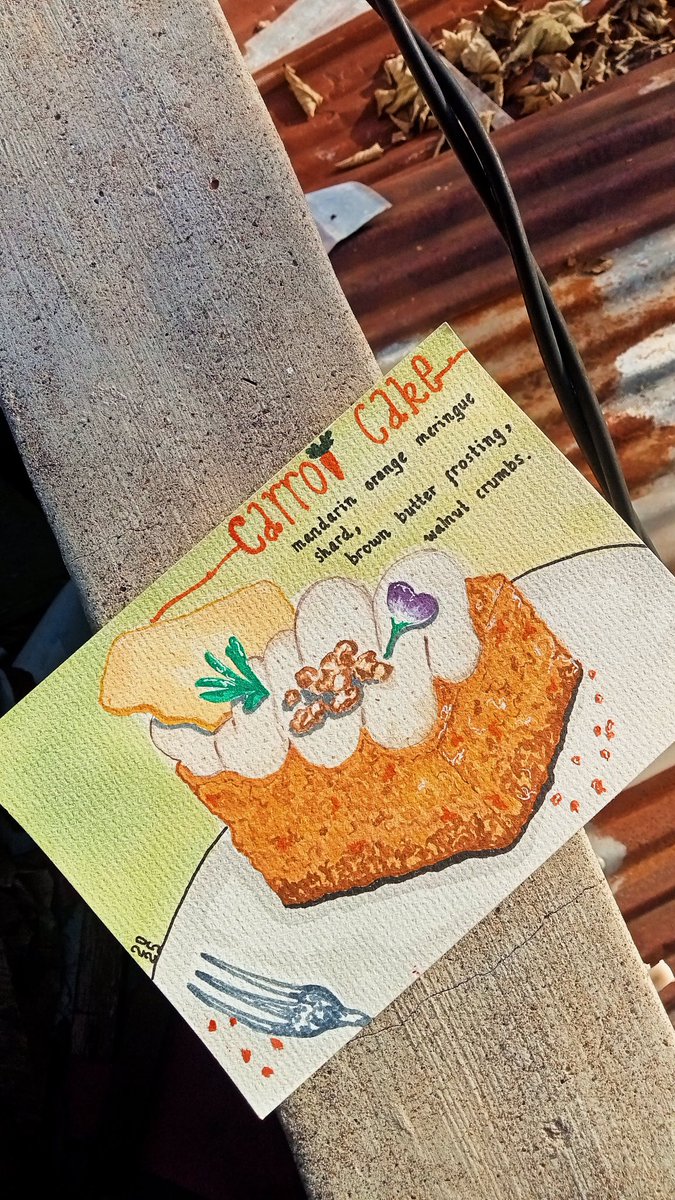 Carrot Cake
mandarin orange meringue
shard,
brown butter frosting,
walnut crumbs.
20
25